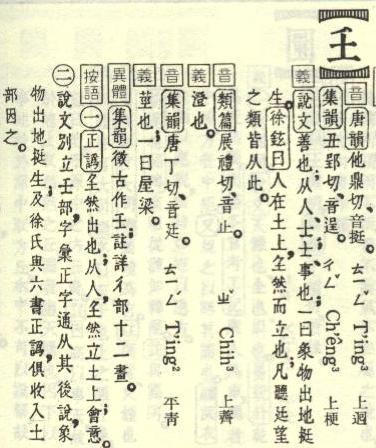 𡈼
音 唐韻他鼎切、音挺。 ㄊㄧㄥˇ T'ing³ 上迥
集韻丑郢切、音逞。 ㄔㄥˇ Ch'êng³ 上梗
義 說文善也；从人、士；士、事也；一曰象物出地挺
生。徐鉉曰人在土上，𡈼然而立也。凡聽廷望
之類皆从此。
音 類篇展禮切、音止。 ㄓˇ Chih³ 上薺
義 澄也。
音 集韻唐丁切、音廷。 ㄊㄧㄥˊ T'ing² 平青
義 莖也；一曰屋梁。
異體 集韻徵古作𡈼；註詳彳部十二畫。
按語 ㊀正譌𡈼然出也；从人𡈼然立土上會意。
㊁說文別立𡈼部；字彙正字通从其後說，象
物出地挺生；及徐氏與六書正譌，俱收入土
部；因之。